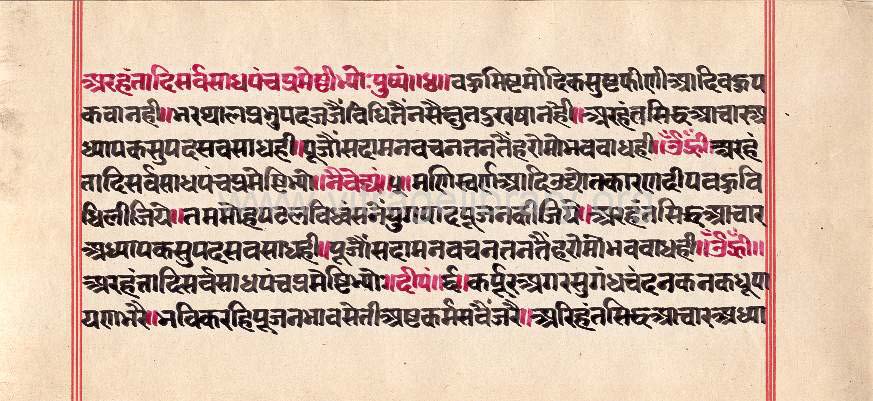 अरहंतादिसर्वसाधपंचप्रमेष्ठीभ्योः पुष्पं॥४॥वङ्गमिष्टमोदिकसुष्टफीणीआदिवङ्गप
कवानही॥भरथालप्रभुपदजजौंविधितैंनसैक्षुतदुखषानही॥अरहंतसिद्धआचारअ
ध्यापकसुपदसवसाधही॥पूजौंसदामनवचनतनतैंहरोमोभववाधही॥उँह्रीँ॥अरहं
तादिसर्वसाधपंचप्रमेष्ठिभ्यो॥नैवेद्यं॥५॥मणिस्वर्णआदिउद्योतकारणदीपवङ्गवि
धिलीजिये॥तममोहपटलविध्वंसनेंयुगपादपूजनकीजिये॥अरहंतसिद्धआचार
अध्यापकसुपदसवसाधही॥पूजौंसदामनवचनतनतैंहरोमोभववाधही॥उँह्रीँ॥
अरहंतादिसर्वसाधपंचप्रमेष्टिभ्यो॥दीपं॥६॥कर्पूरअगरसुगंधचंदनकनकधूपा
यणभरै॥भविकरहिपूजनभावसेतीअष्टकर्मसवैंजरै॥अरिहंतसिद्धआचारअध्या